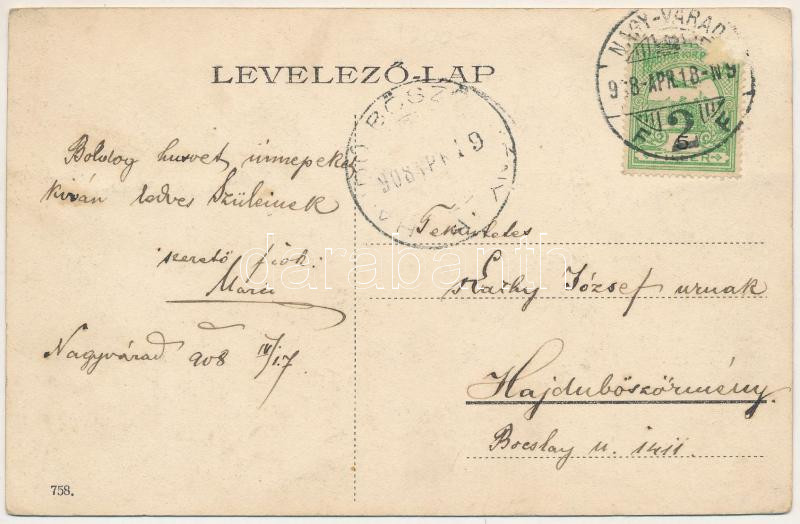 LEVELEZŐ-LAP
NAGY-VÁRAD
908 APR. 18-N9
2
FILLÉR
908 APR 19
Boldog husvet, ünnepeket
kiván kedves Szüleinek
szerető fiok:
Marci
Nagyvárad 908 IV/17
Tekintetes
József urnak
Hajduböszörmény.
Bocskay u. 1411.
758.
darabanth